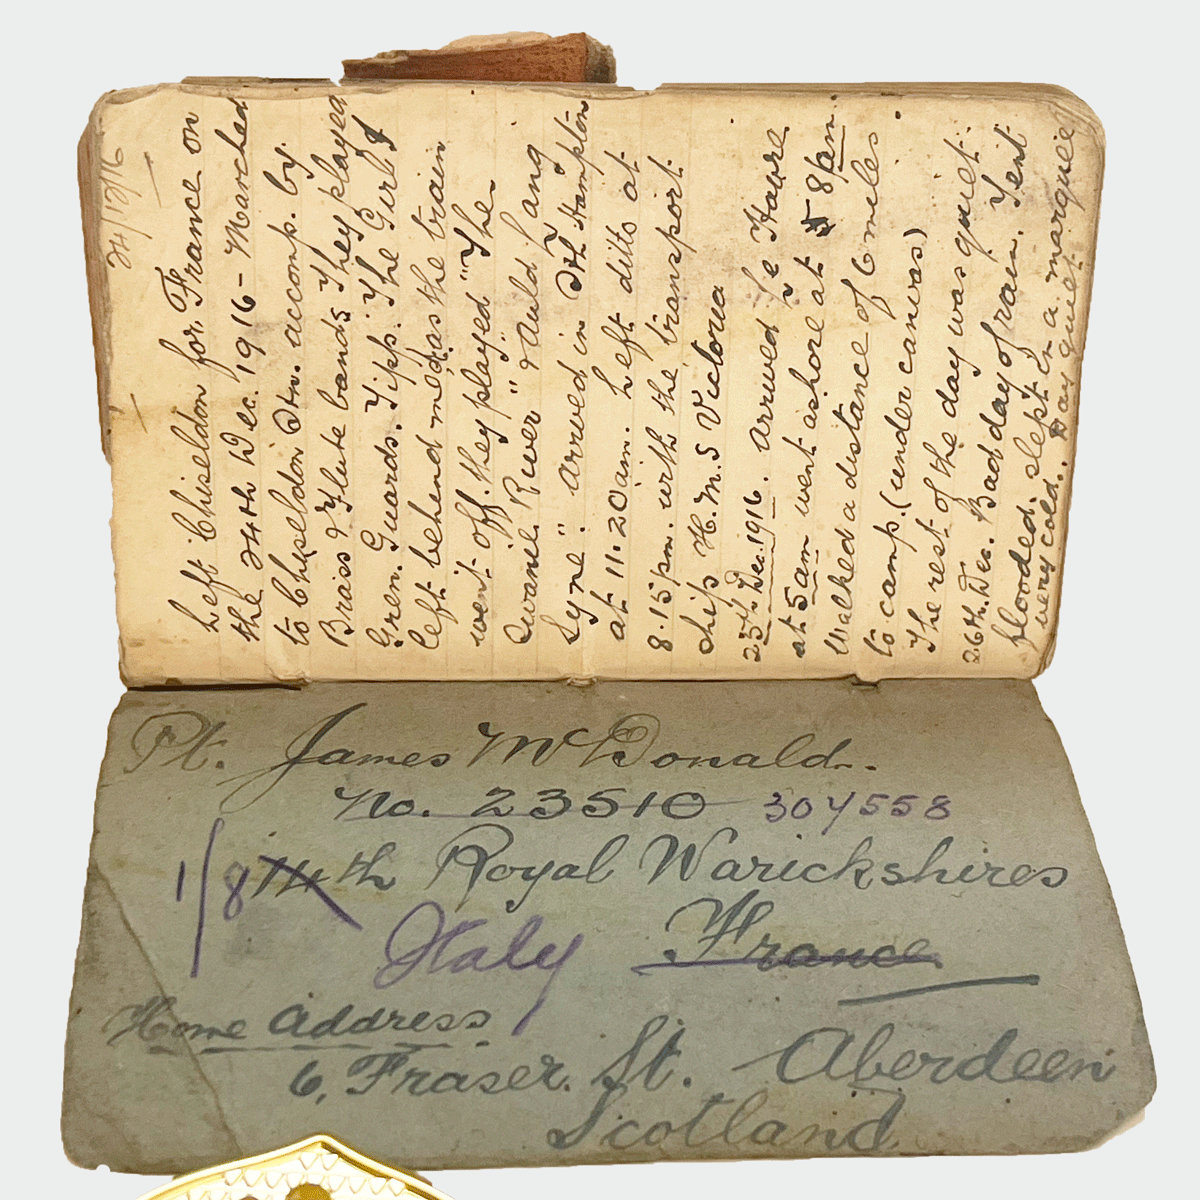 24/12/16
Left Chiseldon for France on
the 24th Dec. 1916 - Marched
to Chiseldon Stn. accomp. by
Brass & Flute bands They played
Gren. Guards. Tipp. The Girl I
left behind me, as the train
went off. they played "The
Swanee River" & "Auld Lang
Syne". Arrived in Sth Hampton
at 11.20am. Left ditto at
8.15pm. with the transport
ship H.M.S Victoria
25th Dec. 1916. Arrived Le Havre
at 5am went ashore at 8am.
Walked a distance of 6 miles
to camp. (under canvas)
The rest of the day was quiet
26th. Dec. Bad day of rain. Tent
flooded. slept in a marquee
very cold. Day quiet
Pt. James McDonald.
No. 23510 307558
1/8 14th Royal Warickshires
Italy France
Home Address
6, Fraser. St. Aberdeen
Scotland